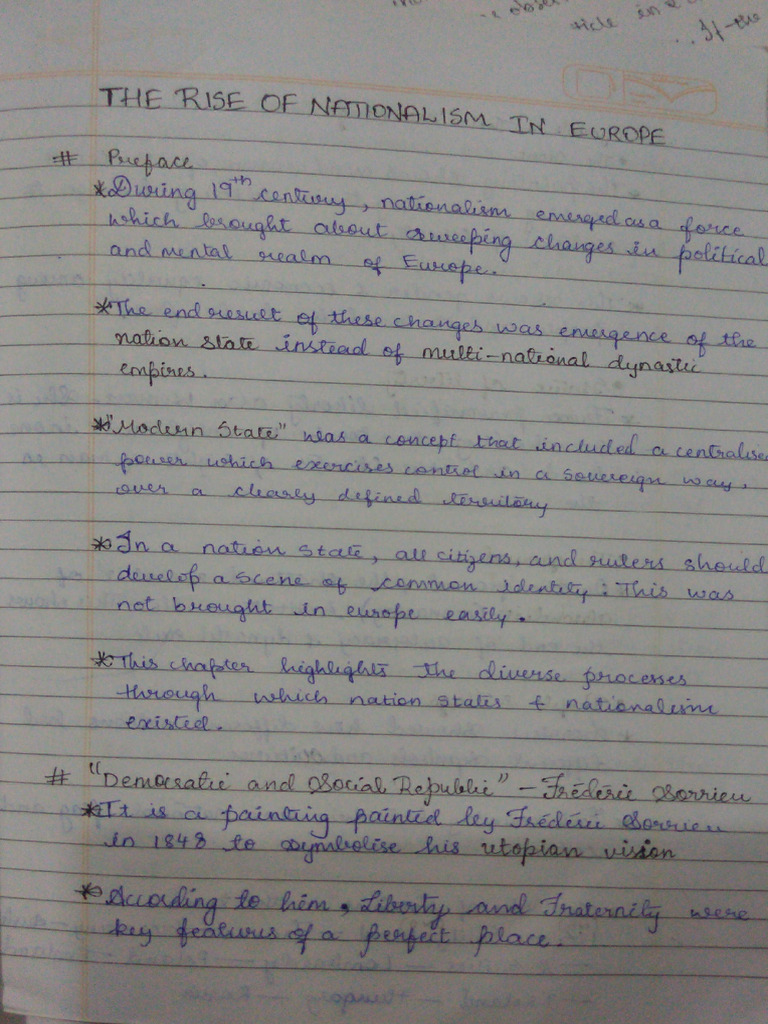 THE RISE OF NATIONALISM IN EUROPE
# Preface
*During 19th century, nationalism emerged as a force
which brought about sweeping changes in political
and mental realm of Europe.
*The end result of these changes was emergence of the
nation state instead of multi-national dynastic
empires.
*"Modern State" was a concept that included a centralise
power which exercises control in a sovereign way,
over a clearly defined territory
*In a nation state, all citizens, and rulers should
develop a scene of common identity. This was
not brought in europe easily.
*This chapter highlights the diverse processes
through which nation states & nationalism
existed.
# "Democratic and Social Republic" - Frédéric Sorrieu
*It is a painting painted by Frédéric Sorrieu
in 1848 to symbolise his utopian vision
*According to him, Liberty and Fraternity were
key features of a perfect place.